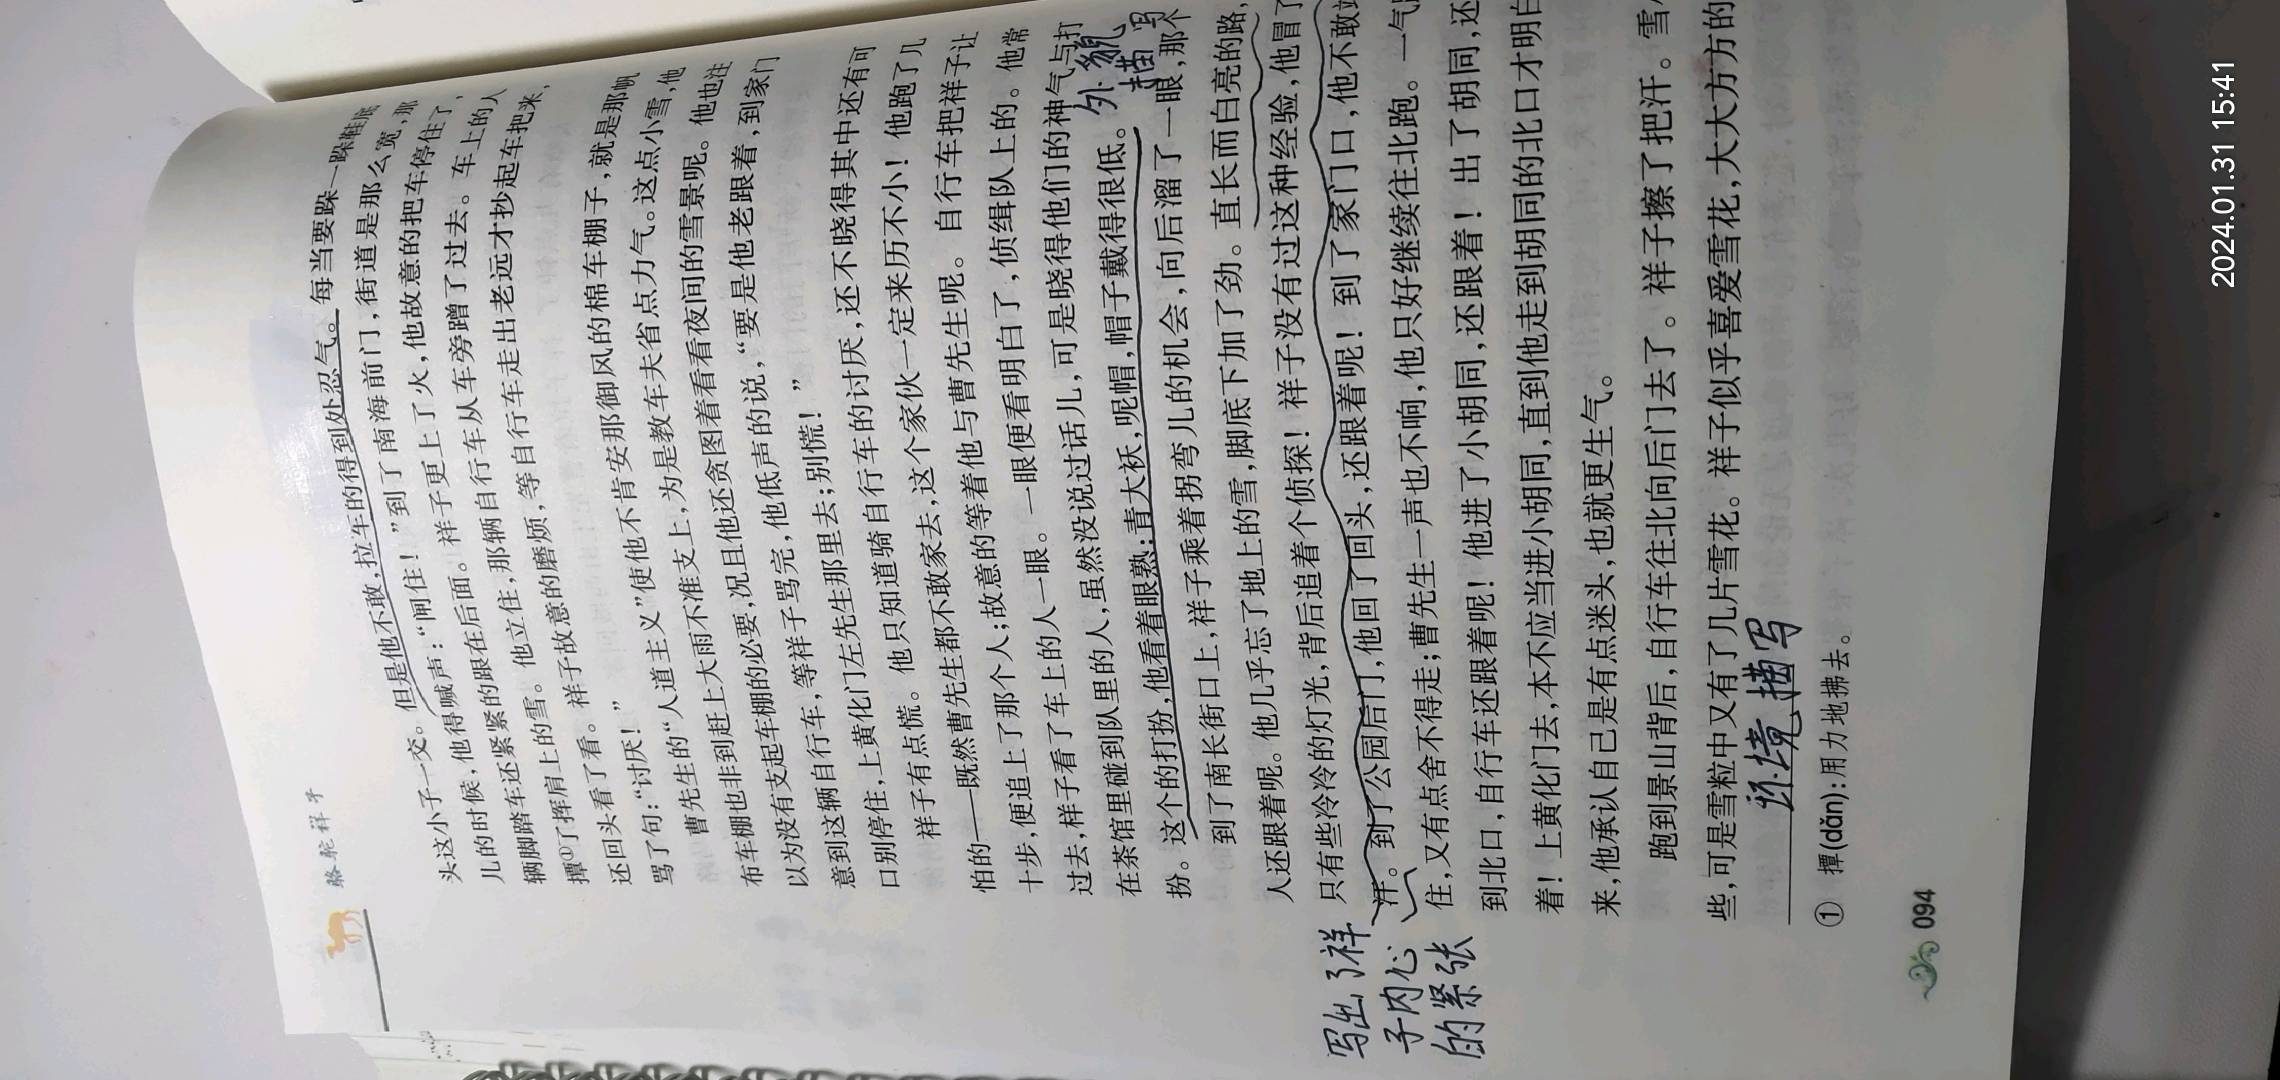 骆驼祥子
头这小子一交。但是他不敢,拉车的得到处忍气。每当要跺一跺鞋底
儿的时候,他得喊声:“闸住!”到了南海前门,街道是那么宽,那
辆脚踏车还紧紧的跟在后面。祥子更上了火,他故意的把车停住了,
撣①了撣肩上的雪。他立住,那辆自行车从车旁蹭了过去。车上的人
还回头看了看。祥子故意的磨烦,等自行车走出老远才抄起车把来,
骂了句:“讨厌!”
曹先生的“人道主义”使他不肯安那御风的棉车棚子,就是那帆
布车棚也非到赶上大雨不准支上,为是教车夫省点力气。这点小雪,他
以为没有支起车棚的必要,况且他还贪图着看看夜间的雪景呢。他也注
意到这辆自行车,等祥子骂完,他低声的说,“要是他老跟着,到家门
口别停住,上黄化门左先生那里去;别慌!”
祥子有点慌。他只知道骑自行车的讨厌,还不晓得其中还有可
怕的——既然曹先生都不敢家去,这个家伙一定来历不小!他跑了几
十步,便追上了那个人;故意的等着他与曹先生呢。自行车把祥子让
过去,祥子看了车上的人一眼。一眼便看明白了,侦缉队上的。他常
在茶馆里碰到队里的人,虽然没说过话儿,可是晓得他们的神气与打
扮。这个的打扮,他看着眼熟:青大袄,呢帽,帽子戴得很低。
外貌
描写
到了南长街口上,祥子乘着拐弯儿的机会,向后溜了一眼,那个
人还跟着呢。他几乎忘了地上的雪,脚底下加了劲。直长而白亮的路,
只有些冷冷的灯光,背后追着个侦探!祥子没有过这种经验,他冒了
汗。到了公园后门,他回了回头,还跟着呢!到了家门口,他不敢站
住,又有点舍不得走;曹先生一声也不响,他只好继续往北跑。一气
到北口,自行车还跟着呢!他进了小胡同,还跟着!出了胡同,还
着!上黄化门去,本不应当进小胡同,直到他走到胡同的北口才明白
来,他承认自己是有点迷头,也就更生气。
写出了祥
子内心
的紧张
跑到景山背后,自行车往北向后门去了。祥子擦了把汗。雪小
些,可是雪粒中又有了几片雪花。祥子似乎喜爱雪花,大大方方的
环境描写
① 撣(dǎn):用力地拂去。
094
2024.01.31 15:41